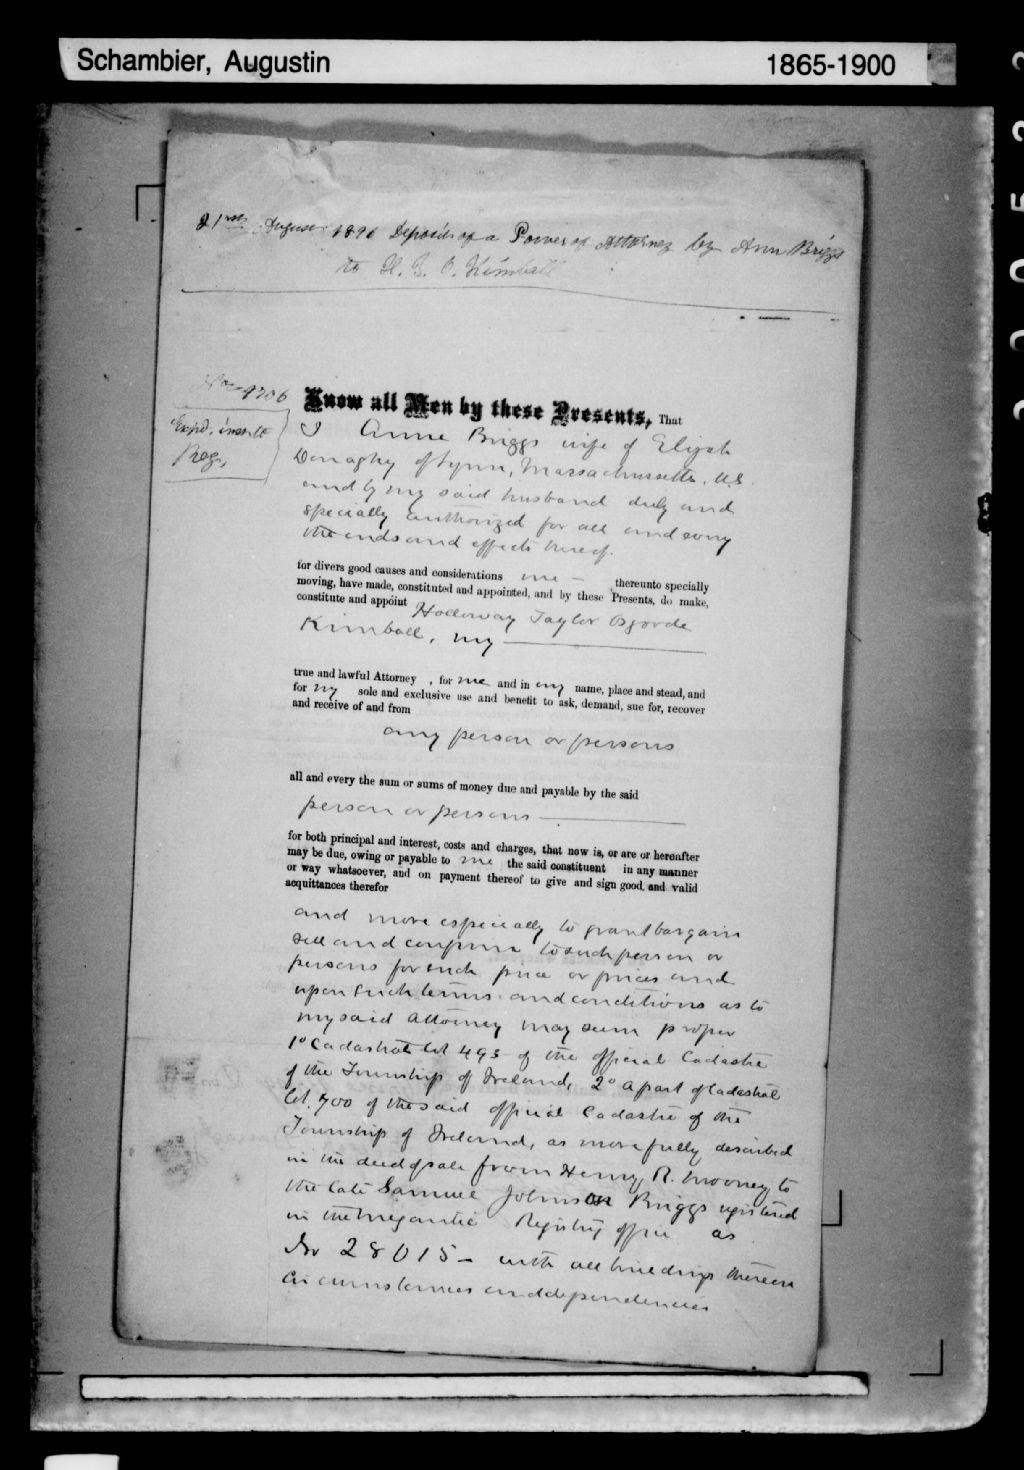 Schambier, Augustin 1865-1900
21st August 1896 Deposit of a Power of Attorney by Ann Briggs
to H. T. O. Kimball
No 4706
Expd. insert
Reg.
Know all Men by these Presents, That
I Anne Briggs wife of Elijah
Donaghy of Lynn, Massachussetts, U.S.
and by my said husband duly and
specially authorized for all and every
the ends and effects hereof.
for divers good causes and considerations me thereunto specially
moving, have made, constituted and appointed, and by these Presents, do make,
constitute and appoint Holloway Taylor Osgorde
Kimball, my
true and lawful Attorney , for me and in my name, place and stead, and
for my sole and exclusive use and benefit to ask, demand, sue for, recover
and receive of and from
any person or persons
all and every the sum or sums of money due and payable by the said
person or persons
for both principal and interest, costs and charges, that now is, or are or hereafter
may be due, owing or payable to me the said constituent in any manner
or way whatsoever, and on payment thereof to give and sign good, and valid
acquittances therefor
and more especially to grant bargain
sell and confirm to such person or
persons for such price or prices and
upon such terms and conditions as to
my said attorney may seem proper
1o Cadastral lot 493 of the official Cadastre
of the Township of Ireland, 2o a part of Cadastral
lot 700 of the said official Cadastre of the
Township of Ireland, as more fully described
in the deed of sale from Henry R. Mooney to
the late Samuel Johnson Briggs registered
in the Megantic Registry office as
No 28015 - with all buildings thereon
circumstances and dependencies